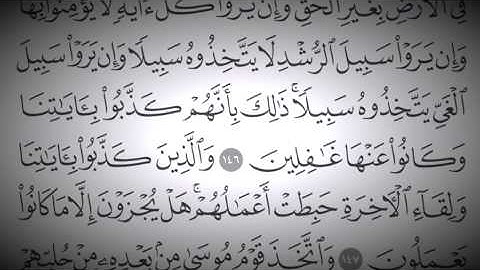 فِي ٱلْأَرْضِ بِغَيْرِ ٱلْحَقِّ وَإِن يَرَوْا۟ كُلَّ ءَايَةٍ لَّا يُؤْمِنُوا۟ بِهَا
وَإِن يَرَوْا۟ سَبِيلَ ٱلرُّشْدِ لَا يَتَّخِذُوهُ سَبِيلًا وَإِن يَرَوْا۟ سَبِيلَ
ٱلْغَىِّ يَتَّخِذُوهُ سَبِيلًا ۚ ذَٰلِكَ بِأَنَّهُمْ كَذَّبُوا۟ بِـَٔايَـٰتِنَا
وَكَانُوا۟ عَنْهَا غَـٰفِلِينَ ١٤٦ وَٱلَّذِينَ كَذَّبُوا۟ بِـَٔايَـٰتِنَا
وَلِقَآءِ ٱلْـَٔاخِرَةِ حَبِطَتْ أَعْمَـٰلُهُمْ ۚ هَلْ يُجْزَوْنَ إِلَّا مَا كَانُوا۟
يَعْمَلُونَ ١٤٧ وَٱتَّخَذَ قَوْمُ مُوسَىٰ مِنۢ بَعْدِهِۦ مِنْ حُلِيِّهِمْ